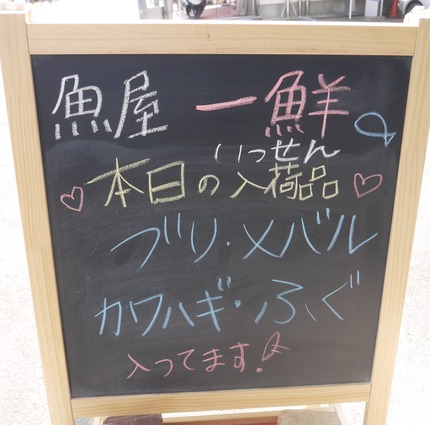 魚屋 一鮮
いっせん
本日の入荷品
ブリ・メバル
カワハギ・ふぐ
入ってます!